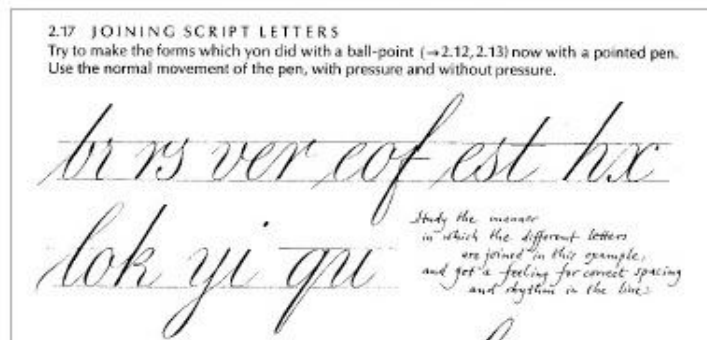 2.17 JOINING SCRIPT LETTERS
Try to make the forms which yon did with a ball-point (→2.12, 2.13) now with a pointed pen.
Use the normal movement of the pen, with pressure and without pressure.
br rs ver eof est hx
lok yi qu
Study the manner
in which the different letters
are joined in this example,
and get a feeling for correct spacing
and rhythm in the line!